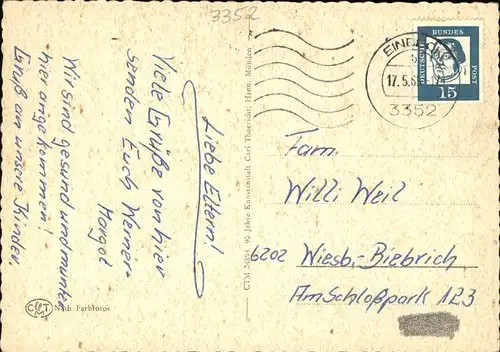 3352
Liebe Eltern!
Viele Grüße von hier
senden Euch Werner
Margot
Wir sind gesund und munter
hier angekommen!
Gruß an unsere Kinder.
CTM 90 Jahre Kunstanstalt Carl Thoericht, Hann. Münden
Nadi Farbfotos
EINBECK
17.5.6
3352
DEUTSCHE
BUNDES
POST
15
Fam.
Willi Weil
6202 Wiesb.-Biebrich
Am Schloßpark 123